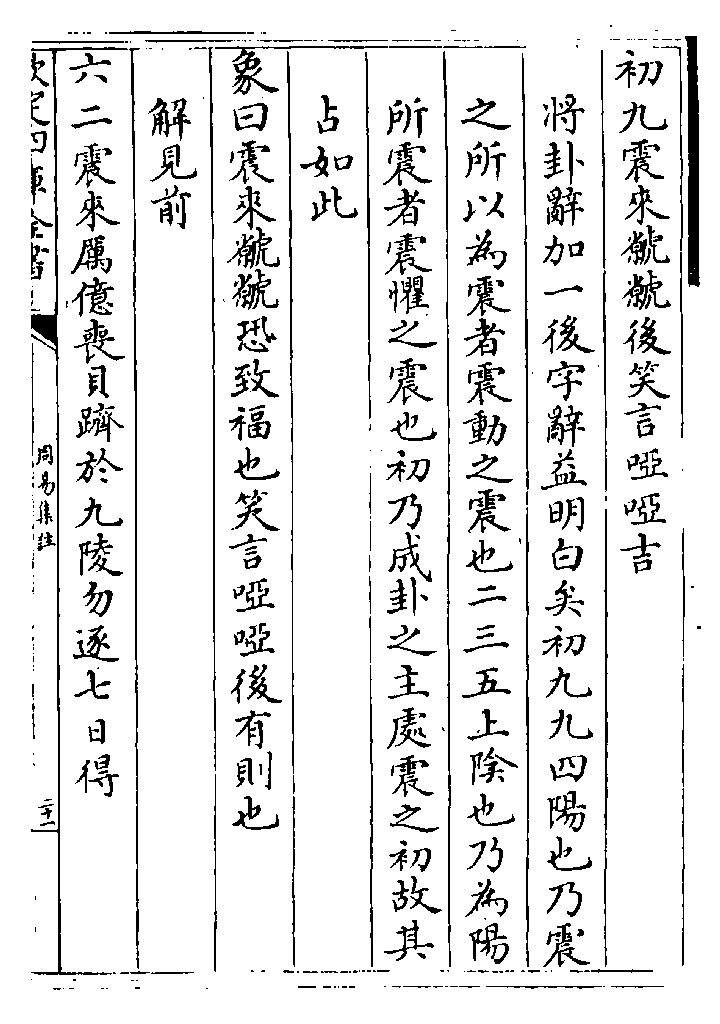 初九震來虩虩後笑言啞啞吉
將卦辭加一後字辭益明白矣初九九四陽也乃震
之所以為震者震動之震也二三五上陰也乃為陽
所震者震懼之震也初乃成卦之主處震之初故其
占如此
象曰震來虩虩恐致福也笑言啞啞後有則也
解見前
六二震來厲億喪貝躋於九陵勿逐七日得
欽定四庫全書
周易集註
二十一